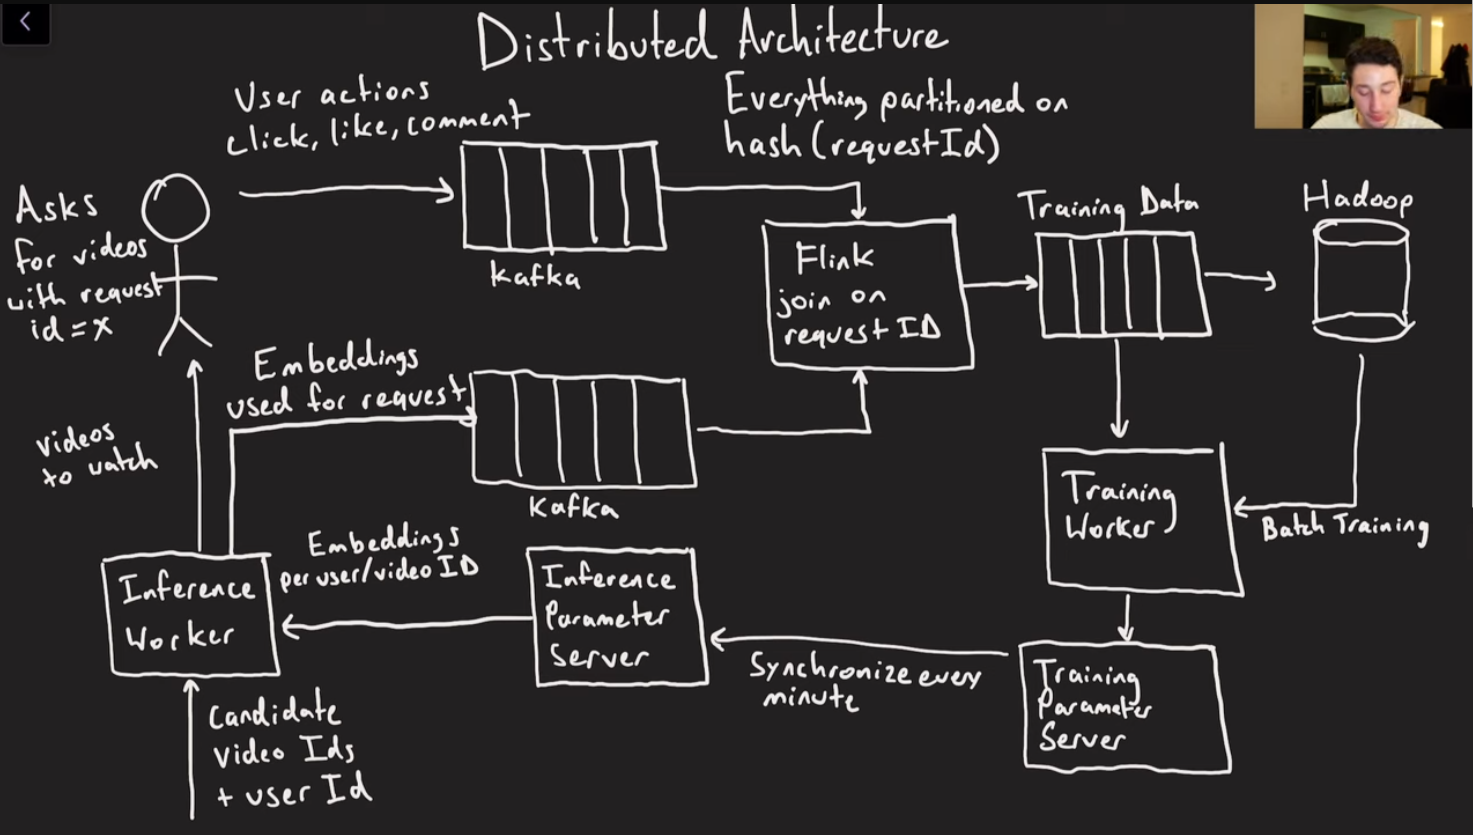 Distributed Architecture
User actions
click, like, comment
Everything partitioned on
hash(requestId)
Asks
for videos
with request
id = x
Kafka
Flink
join on
request ID
Training Data
Hadoop
Embeddings
used for request
Kafka
videos
to watch
Training
Worker
Batch Training
Inference
Worker
Embeddings
per user/video ID
Inference
Parameter
Server
Synchronize every
minute
Training
Parameter
Server
Candidate
video Ids
+ user Id